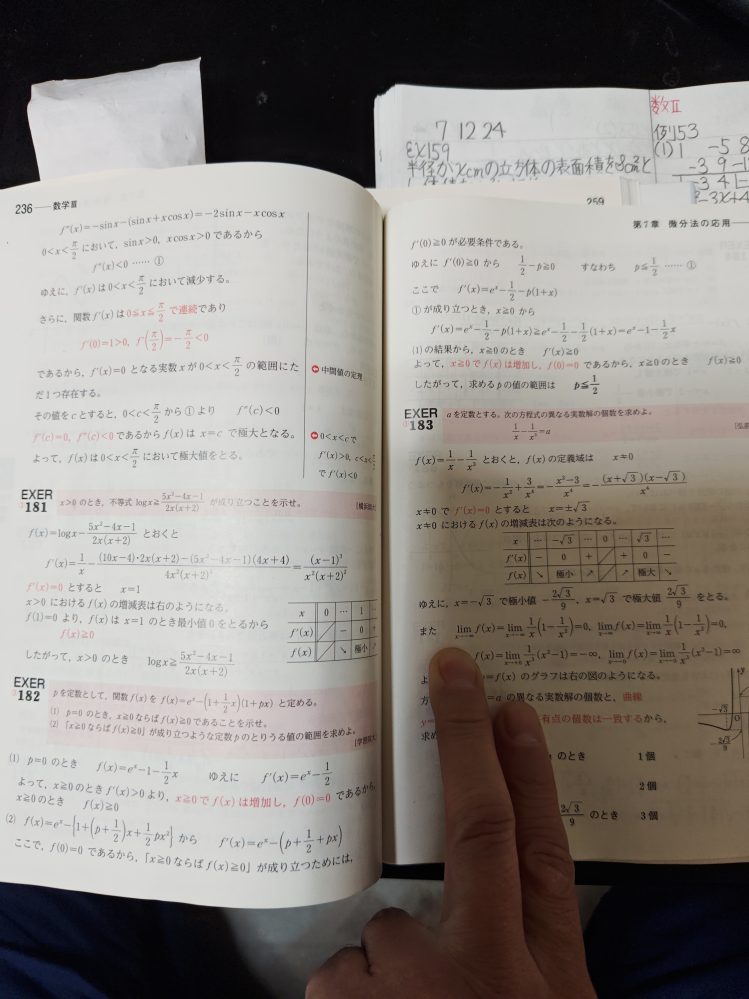 236 数学Ⅲ
f″(x)=−sinx−(sinx+xcosx)=−2sinx−xcosx
0<x<π/2 において，sinx>0，xcosx>0 であるから
f″(x)<0 …… ①
ゆえに，f′(x) は 0<x<π/2 において減少する。
さらに，関数 f′(x) は 0≦x≦π/2 で連続であり
f′(0)=1>0, f′(π/2)=−π/2<0
であるから，f′(x)=0 となる実数 x が 0<x<π/2 の範囲にた
だ1つ存在する。
中間値の定理
その値を c とすると，0<c<π/2 から ① より f″(c)<0
f′(c)=0, f″(c)<0 であるから f(x) は x=c で極大となる。
よって，f(x) は 0<x<π/2 において極大値をとる。
0<x<c で
f′(x)>0, c<x<
で f′(x)<0
EXER 181
x>0 のとき，不等式 logx≧(5x²−4x−1)/(2x(x+2)) が成り立つことを示せ。
f(x)=logx−(5x²−4x−1)/(2x(x+2)) とおくと
f′(x)=1/x−((10x−4)・2x(x+2)−(5x²−4x−1)(4x+4))/(4x²(x+2)²)=(x−1)³/(x²(x+2)²)
f′(x)=0 とすると x=1
x>0 における f(x) の増減表は右のようになる。
f(1)=0 より，f(x) は x=1 のとき最小値 0 をとるから
f(x)≧0
したがって，x>0 のとき logx≧(5x²−4x−1)/(2x(x+2))
x 0 … 1 …
f′(x) − 0 +
f(x) ↘ 極小
EXER 182
p を定数として，関数 f(x) を f(x)=eˣ−(1+1/2x)(1+px) と定める。
(1) p=0 のとき，x≧0 ならば f(x)≧0 であることを示せ。
(2) 「x≧0 ならば f(x)≧0」が成り立つような定数 p のとりうる値の範囲を求めよ。
(1) p=0 のとき f(x)=eˣ−1−1/2x ゆえに f′(x)=eˣ−1/2
よって，x≧0 のとき f′(x)>0 より，x≧0 で f(x) は増加し，f(0)=0 であるから，
x≧0 のとき f(x)≧0
(2) f(x)=eˣ−{1+(p+1/2)x+1/2px²} から f′(x)=eˣ−(p+1/2+px)
ここで，f(0)=0 であるから，「x≧0 ならば f(x)≧0」が成り立つためには，
7 12 24
EX159
半径がxcmの立方体の表面積を
数Ⅱ
例153
(1) 1 −5 8
−3 9
259
第7章 微分法の応用
f′(0)≧0 が必要条件である。
ゆえに f′(0)≧0 から 1/2−p≧0 すなわち p≦1/2 …… ①
ここで f′(x)=eˣ−1/2−p(1+x)
① が成り立つとき，x≧0 から
f′(x)=eˣ−1/2−p(1+x)≧eˣ−1/2−1/2(1+x)=eˣ−1−1/2x
(1) の結果から，x≧0 のとき f′(x)≧0
よって，x≧0 で f(x) は増加し，f(0)=0 であるから，x≧0 のとき f(x)≧0
したがって，求める p の値の範囲は p≦1/2
EXER 183
a を定数とする。次の方程式の異なる実数解の個数を求めよ。
1/x−1/x³=a
f(x)=1/x−1/x³ とおくと，f(x) の定義域は x≠0
f′(x)=−1/x²+3/x⁴=−(x²−3)/x⁴=−((x+√3)(x−√3))/x⁴
x≠0 で f′(x)=0 とすると x=±√3
x≠0 における f(x) の増減表は次のようになる。
x … −√3 … 0 … √3 …
f′(x) − 0 + + 0 −
f(x) ↘ 極小 ↗ ↗ 極大 ↘
ゆえに，x=−√3 で極小値 −2√3/9，x=√3 で極大値 2√3/9 をとる。
また lim f(x)=lim 1/x(1−1/x²)=0, lim f(x)=lim 1/x(1−1/x²)=0,
f(x)=lim 1/x³(x²−1)=−∞, lim f(x)=lim 1/x³(x²−1)=∞
=f(x) のグラフは右の図のようになる。
=a の異なる実数解の個数と，曲線
有点の個数は一致するから，
求め
のとき 1個
2個
2√3/9 のとき 3個
y
−√3
−2√3/9